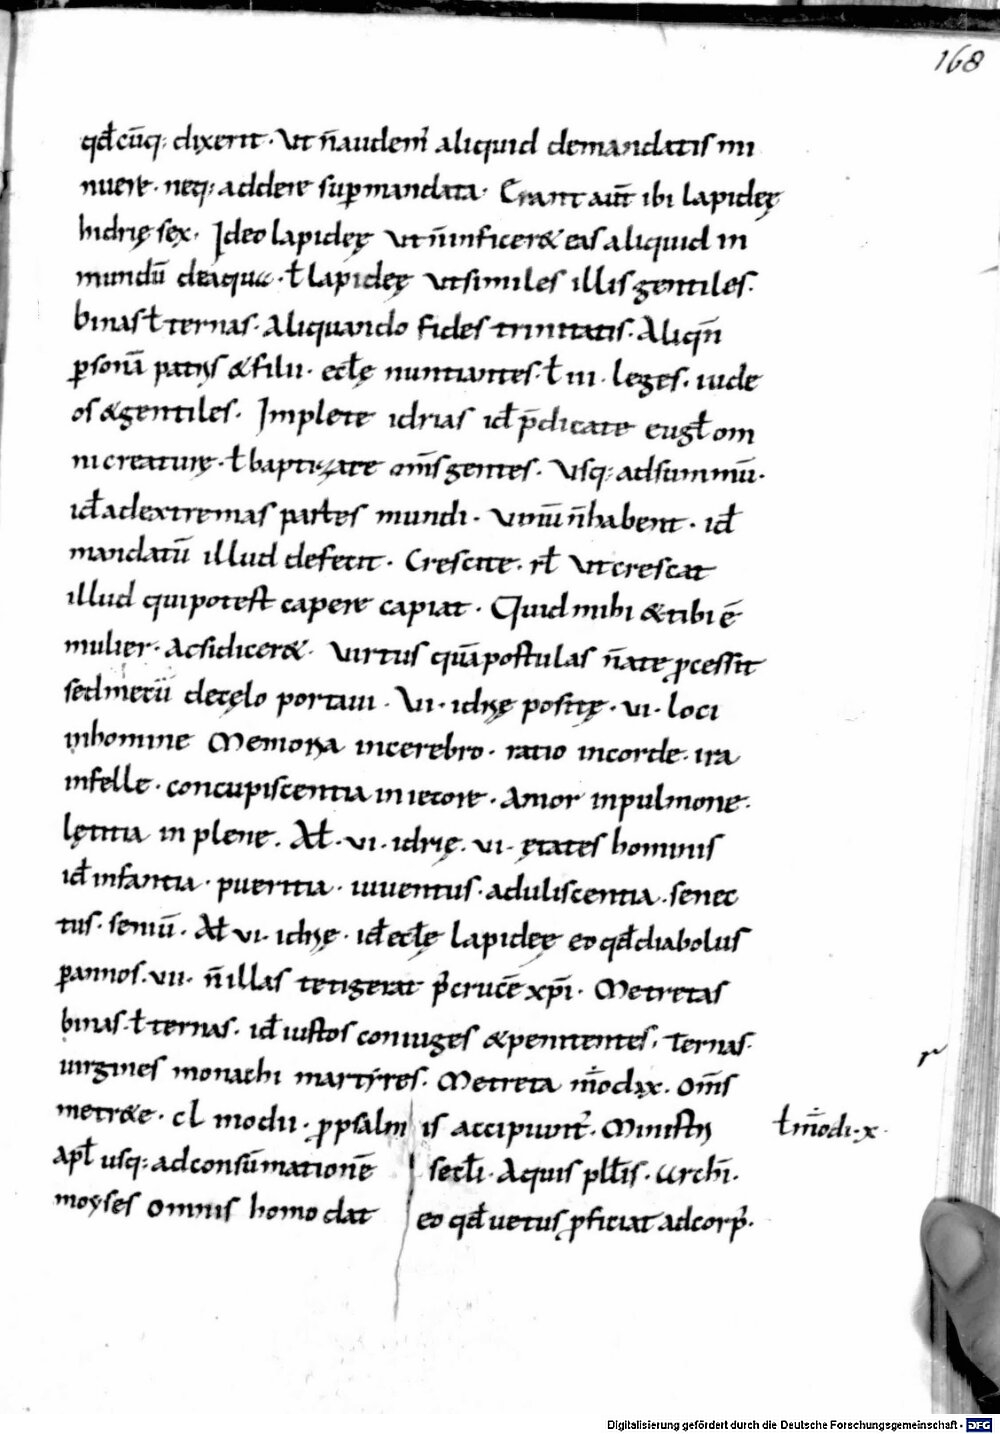 168
qđcūq; dixerit. Ut n̄audem̄ aliquid demandatis mi
nuere. neq; addere sup mandata. Erant aut̄ ibi lapideę
hidrię sex. Ideo lapideę ut n̄inficer& eas aliquid in
mundū deaqua. ł lapideę utsimiles illis gentiles.
binas ł ternas. Aliquando fides trinitatis. Aliqn̄
p̲sonā patris &filii. ecłę nuntiantes. ł iii. leges. iude
os &gentiles. Implete idrias iđ p̄dicate eugł om
ni creaturę. ł baptizare om̄s gentes. Usq; adsummū.
iđ adextremas partes mundi. Uinū n̄habent. iđ
mandatū illud defecit. Crescite. rł ut crescat
illud quipotest capere capiat. Quid mihi &tibi ē
mulier. acsidicer&. Virtus quā postulas n̄ate p̲cessit
sed metū decęlo portaui. Vi. idrię positę. vi. loci
inhomine Memoria incerebro. ratio incorde. ira
infelle. concupiscentia inietore. Amor inpulmone.
lętitia in plene. Ał. vi. idrię. vi. ętates hominis
iđ infantia. pueritia. iuuentus. aduliscentia. senec
tus. seniū. Ał vi. idrię. iđ ecłę lapideę eo qđ diabolus
p̲annos. vii. n̄ illas tetigerat p̲ crucē xp̄i. Metretas
binas. ł ternas. iđ iustos coniuges &penitentes. Ternas.
uirgines monachi martyres. Metreta m̄odi x. om̄s
metr&e. cl modii. p̲p salm is accipiunt̄. Ministri
r
ł m̄odi. x.
apł usq; adconsūmationē secłi. Aquis płłis. archi.
moyses omnis homo dat eo qđ uetus p̲ficiat adcorp̄.
Digitalisierung gefördert durch die Deutsche Forschungsgemeinschaft - DFG